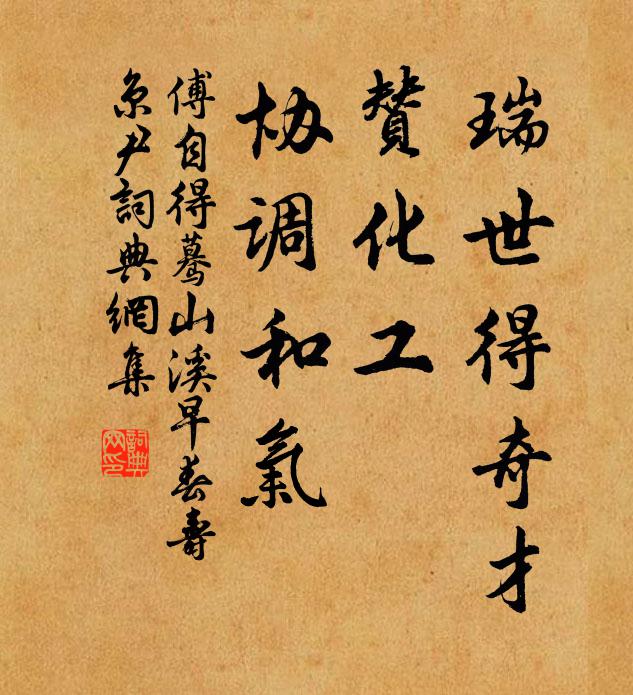 瑞世得奇才
赞化工
协调和氣
傅自得蓦山溪早春壽
京尹詞典網集
詞典網印